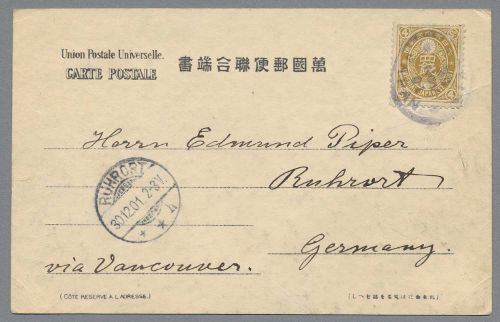 Union Postale Universelle.
CARTE POSTALE
書端合聯便郵國萬
Herrn Edmund Piper
Ruhrort
Germany.
via Vancouver.
RUHRORT
30.12.01. 2-3V.
* * h
JAPAN
(CÔTÉ RÉSERVÉ A L'ADRESSE.)